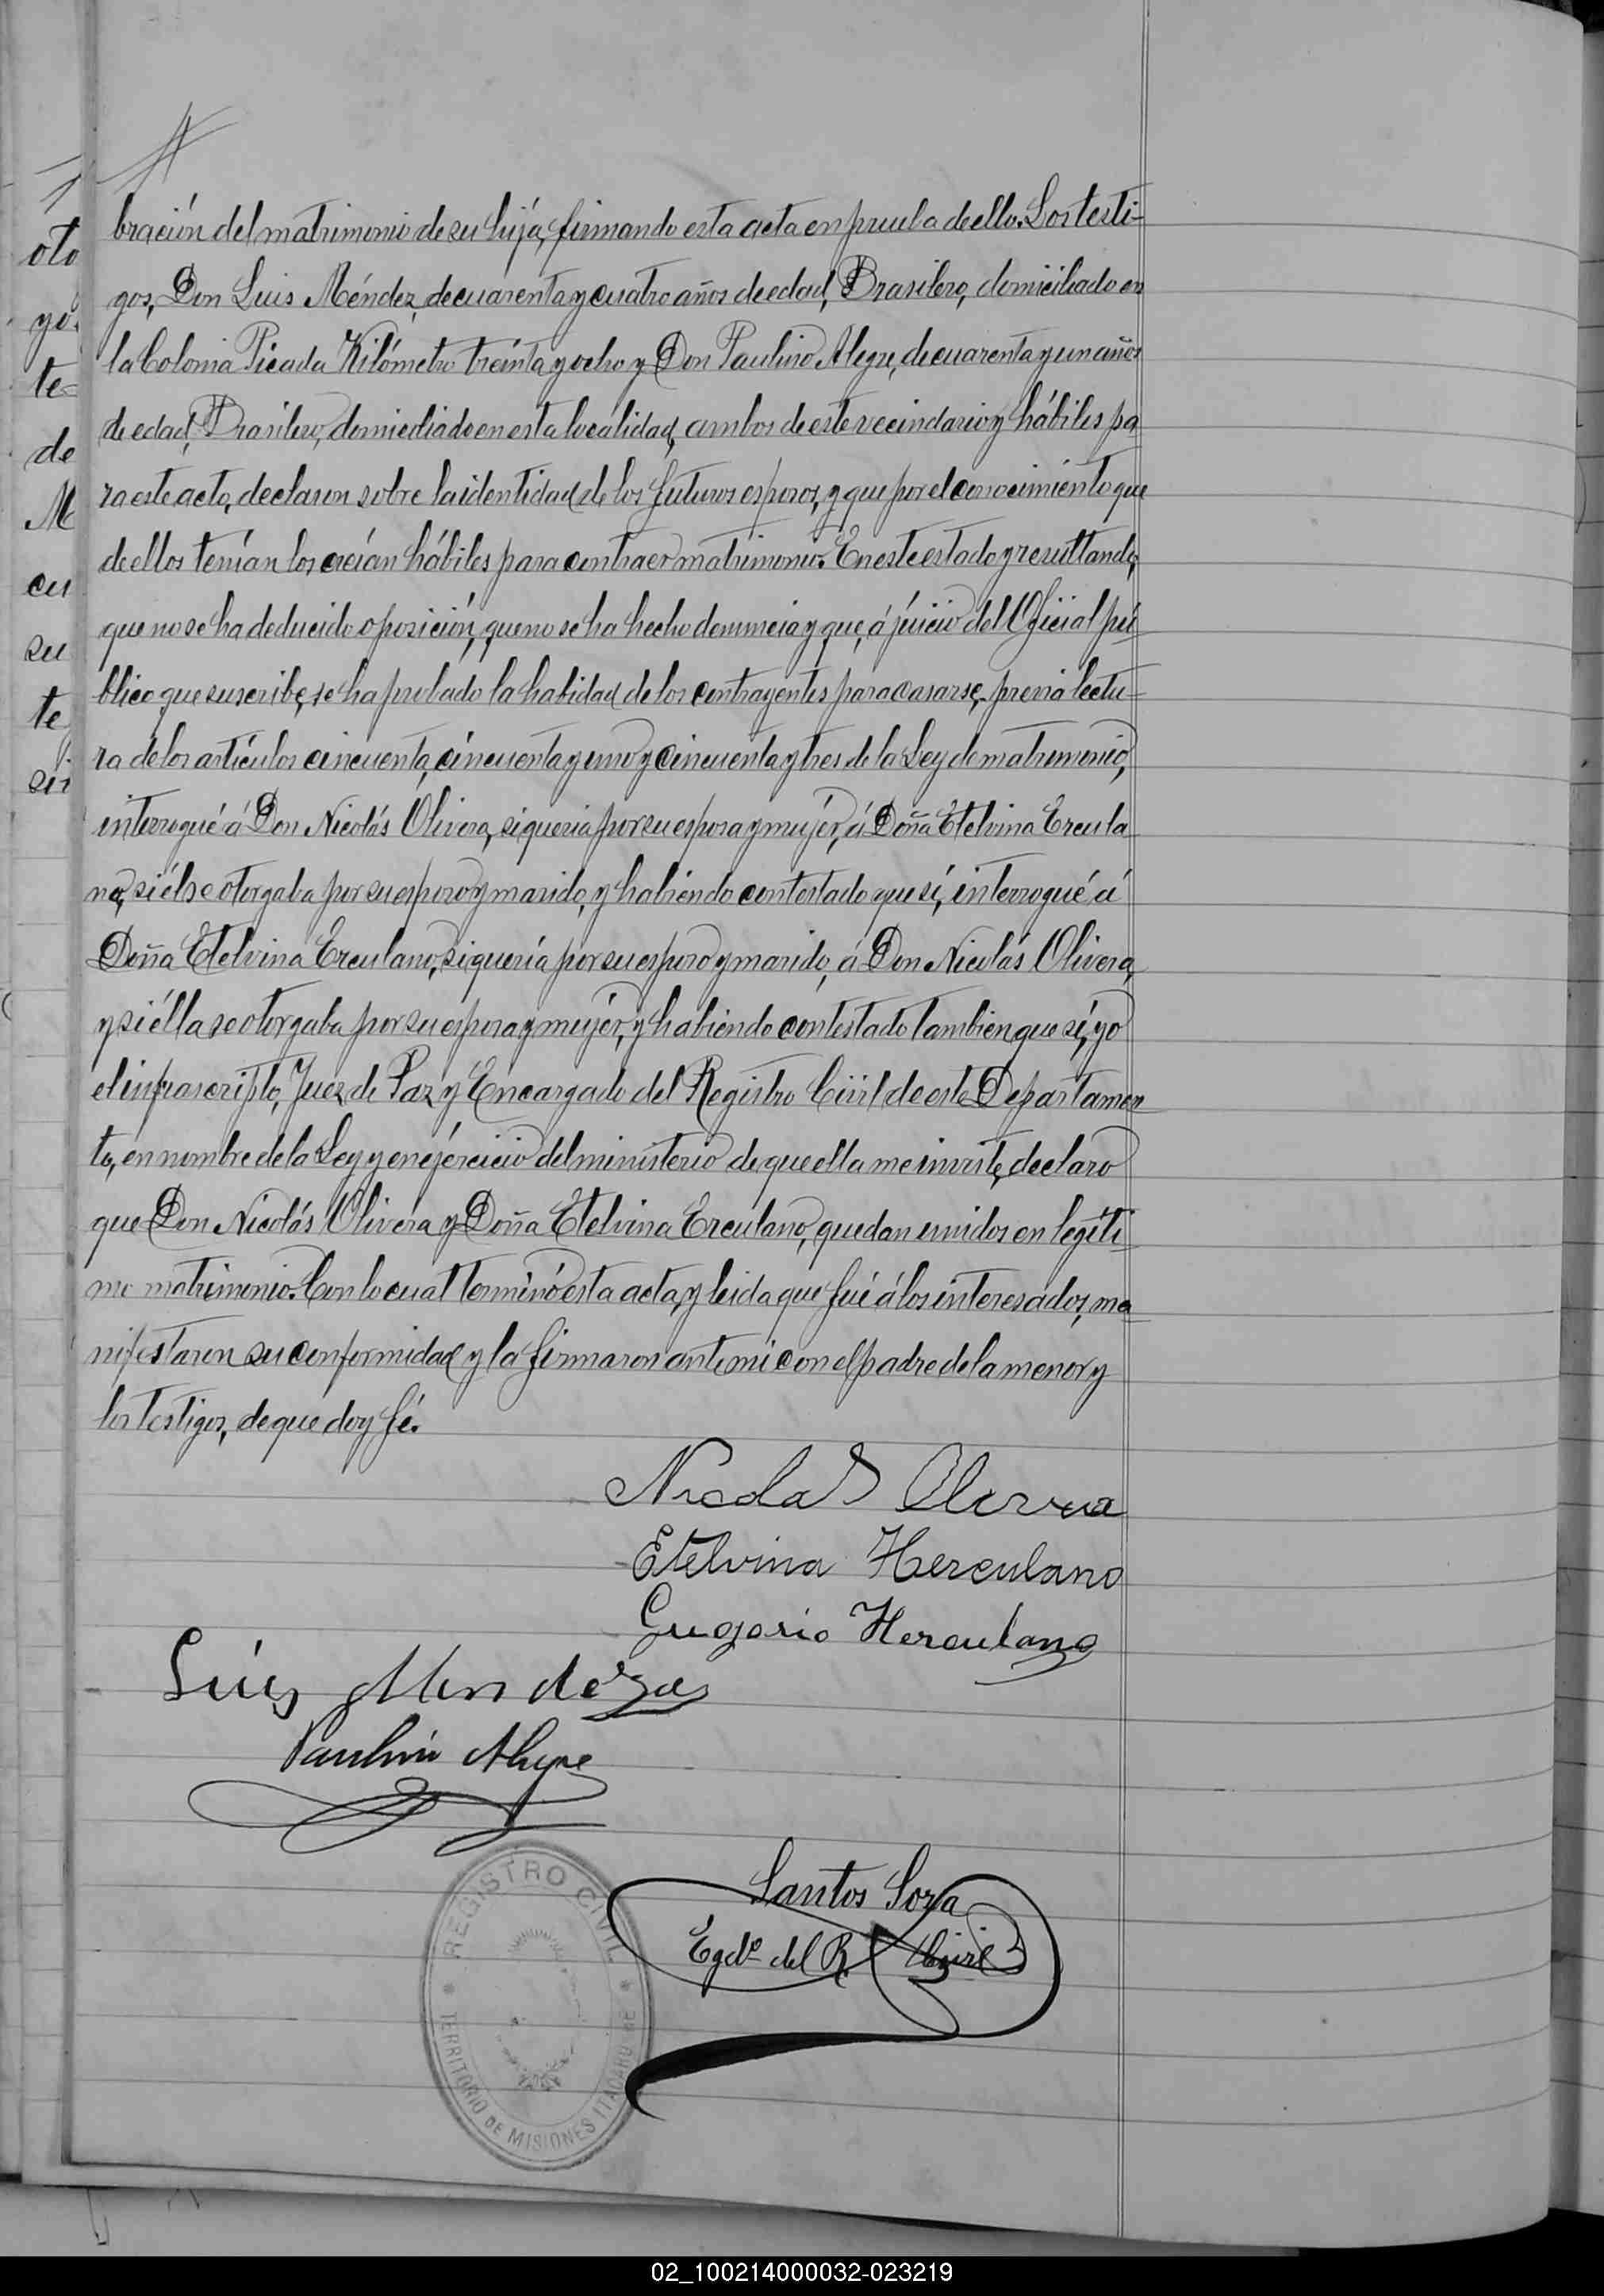 bración del matrimonio de su hija, firmando esta acta en prueba de ello. Los testi-
gos, Don Luis Méndez, de cuarenta y cuatro años de edad, Brasilero, domiciliado en
la Colonia Picada Kilómetro treinta y ocho y Don Paulino Alegre, de cuarenta y un años
de edad, Brasilero, domiciliado en esta localidad, ambos de este vecindario y hábiles pa
ra este acto, declaron sobre la identidad de los futuros esposos, y que por el conocimiento que
de ellos tenían los creían hábiles para contraer matrimonio. En este estado y resultando,
que no se ha deducido oposición, que no se ha hecho denuncia y que, á juicio del Oficial pú
blico que suscribe, se ha probado la habidad de los contrayentes para casarse, previa lectu-
ra de los artículos cincuenta, cincuenta y uno y cincuenta y tres de la Ley de matrimonio,
interrogué á Don Nicolás Olivera, si queria por su esposa y mujer, á Doña Etelvina Ercula
no, si él se otorgaba por su esposo y marido, y habiendo contestado que sí, interrogué á
Doña Etelvina Erculano, si quería por su esposo y marido, á Don Nicolás Olivera,
y si élla se otorgaba por su esposa y mujer, y habiendo contestado tambien que sí, yo
el infrascripto, Juez de Paz y Encargado del Registro Civil de este Departamen
to, en nombre de la Ley y en ejercicio del ministerio de que ella me inviste, declaro
que Don Nicolás Olivera y Doña Etelvina Erculano, quedan unidos en legíti
mo matrimonio. Con lo cual terminó esta acta, y leida que fué á los interesados, ma
nifestaron su conformidad y la firmaron ante mi con el padre de la menor y
los testigos, de que doy fé.
Nicolas Olivera
Etelvina Herculano
Gregorio Herculano
Luis Mendez
Paulino Alegre
Santos Soza
Egdo. del R. Civil
REGISTRO CIVIL
TERRITORIO DE MISIONES ITACARUARE
oto
te
de
M
cu
su
te
02_100214000032-023219